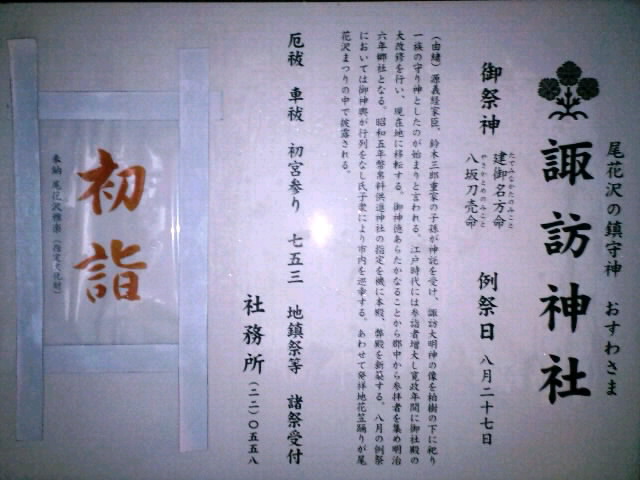 尾花沢の鎮守神 おすわさま
諏訪神社
御祭神 建御名方命 例祭日 八月二十七日
たてみなかたのみこと
八坂刀売命
やさかとめのみこと
(由緒)源義経家臣、鈴木三郎重家の子孫が神託を受け、諏訪大明神の像を柏樹の下に祀り
一族の守り神としたのが始まりと言われる。江戸時代には参詣者増大し寛政年間に御社殿の
大改修を行い、現在地に移転する。御神徳あらたかなることから郡中から参拝者を集め明治
六年郷社となる。昭和五年幣帛料供進神社の指定を機に本殿、弊殿を新築する。八月の例祭
においては御神輿が行列をなし氏子衆により市内を巡幸する。あわせて発祥地花笠踊りが尾
花沢まつりの中で披露される。
厄祓 車祓 初宮参り 七五三 地鎮祭等 諸祭受付
社務所(二二)〇五五八
初詣
奉納 尾花沢雅楽(指定文化財)